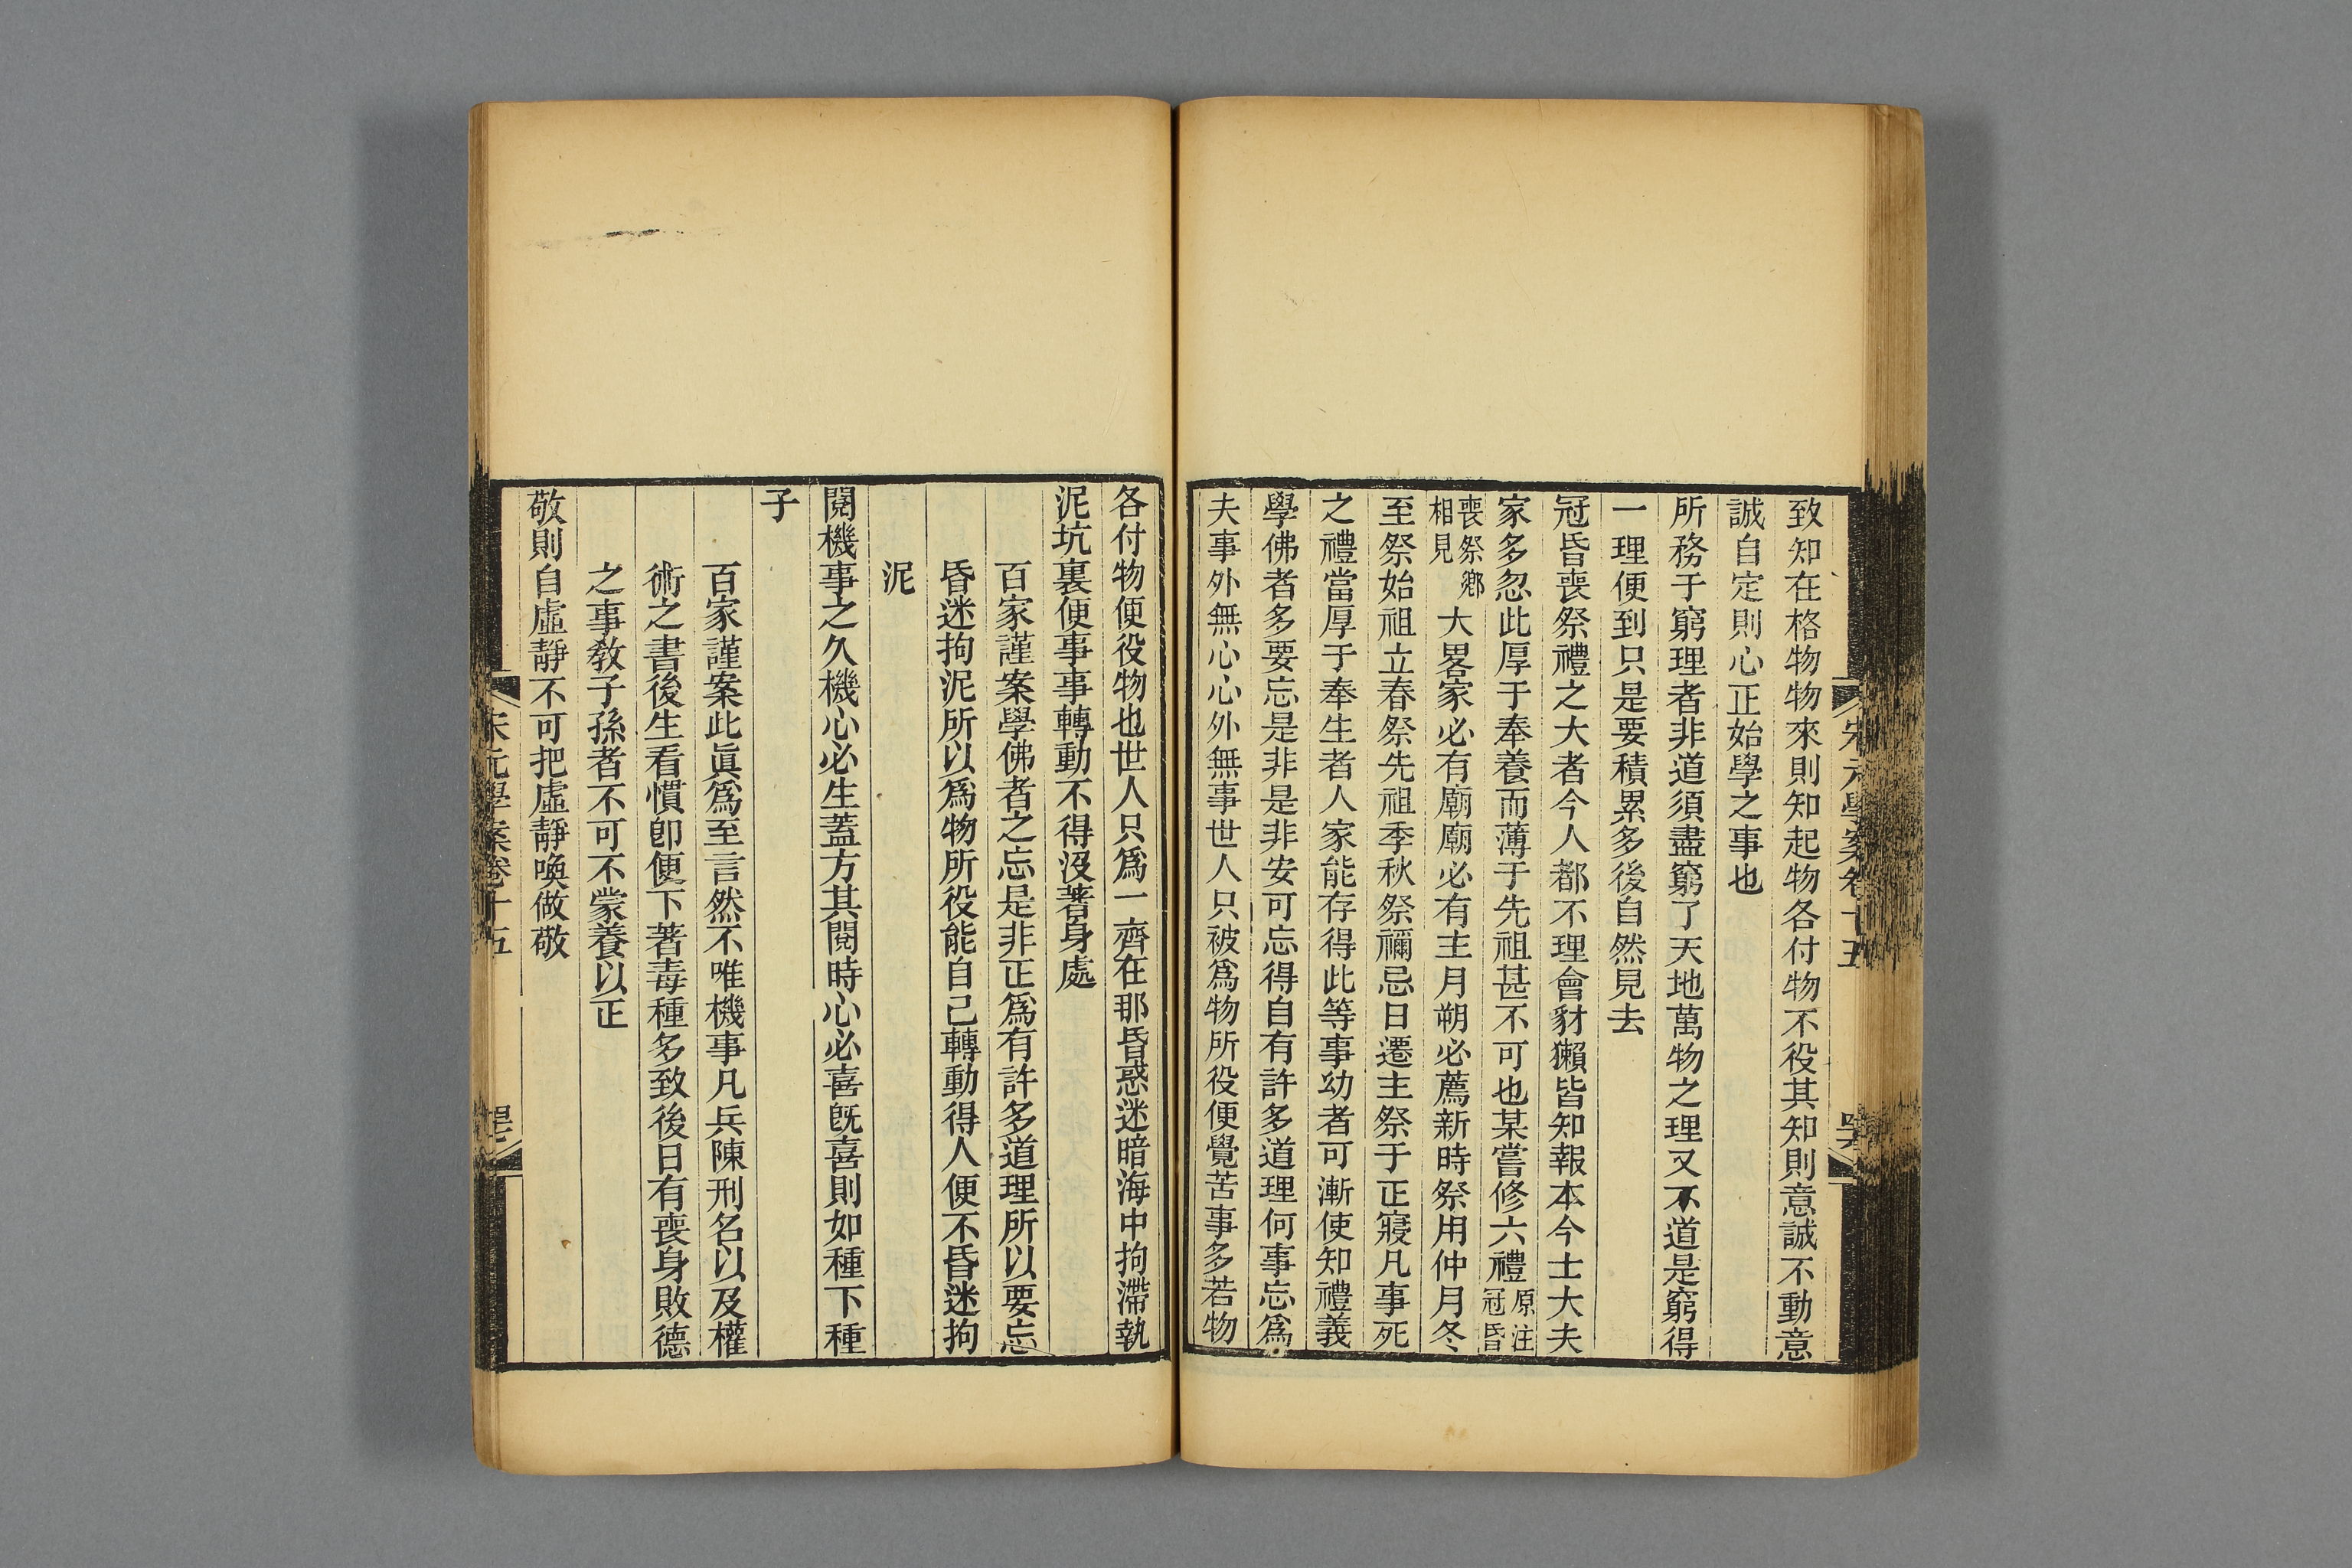 宋元學案卷十五
致知在格物物來則知起物各付物不役其知則意誠不動意
誠自定則心正始學之事也
所務于窮理者非道須盡窮了天地萬物之理又不道是窮得
一理便到只是要積累多後自然見去
冠昏喪祭禮之大者今人都不理會豺獺皆知報本今士大夫
家多忽此厚于奉養而薄于先祖甚不可也某嘗修六禮原注冠昏
喪祭鄉相見大畧家必有廟廟必有主月朔必薦新時祭用仲月冬
至祭始祖立春祭先祖季秋祭禰忌日遷主祭于正寢凡事死
之禮當厚于奉生者人家能存得此等事幼者可漸使知禮義
學佛者多要忘是非是非安可忘得自有許多道理何事忘爲
夫事外無心心外無事世人只被爲物所役便覺苦事多若物
各付物便役物也世人只爲一齊在那昏惑迷暗海中拘滯執
泥坑裏便事事轉動不得沒著身處
百家謹案學佛者之忘是非正爲有許多道理所以要忘
昏迷拘泥所以爲物所役能自己轉動得人便不昏迷拘
泥
閱機事之久機心必生蓋方其閱時心必喜旣喜則如種下種
子
百家謹案此眞爲至言然不唯機事凡兵陳刑名以及權
術之書後生看慣卽便下著毒種多致後日有喪身敗德
之事教子孫者不可不蒙養以正
敬則自虛靜不可把虛靜喚做敬
宋元學案卷十五